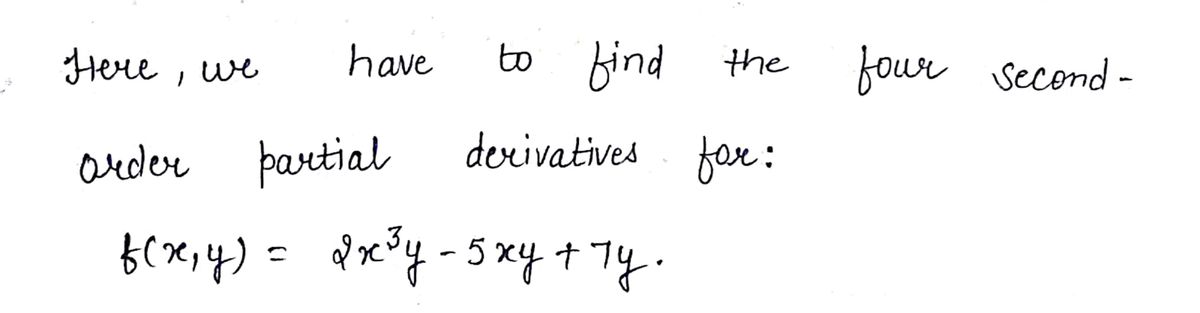 Here, we have to find the four second-
order partial derivatives for:
f(x,y) = 2x³y - 5xy + 7y.